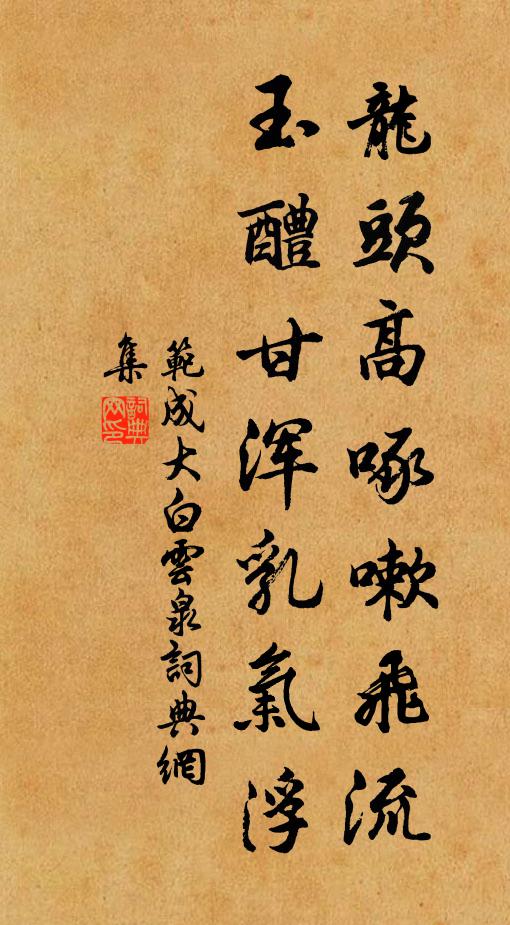 龍頭高啄嗽飛流
玉醴甘浑乳氣浮
範成大白雲泉詞典網
集
詞典
网印